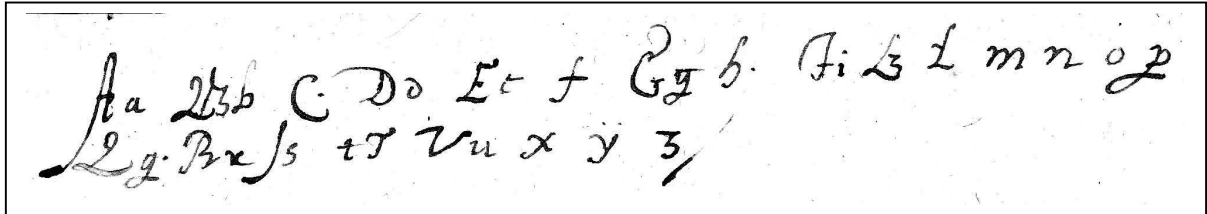 Aa Bb C. Dd Ee f Gg h. Ii k l m n o p
Q q. Rr ſs tT Vu x ÿ z